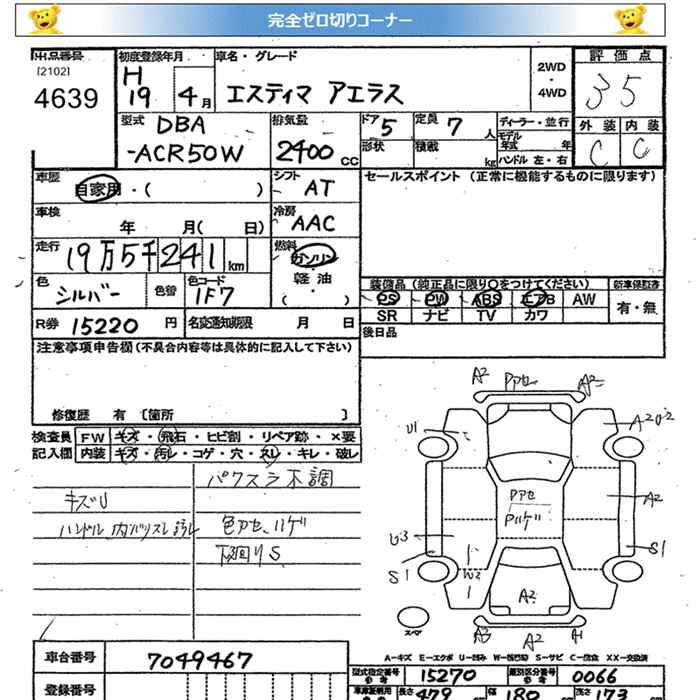 完全ゼロ切りコーナー
出品番号 初度登録年月 車名・グレード 評価点
[2102]
4639
H 19 4月 エスティマ アエラス 2WD・4WD 35
型式 DBA
-ACR50W
排気量 2400 CC
ドア 5 定員 7 人
形状 積載 kg
ディーラー・並行
モデル年式 年
ハンドル 左・右
外装 内装
C C
車歴 自家用・( ) シフト AT
セールスポイント(正常に機能するものに限ります)
車検 年 月( 日) 冷房 AAC
走行 19万5千241 km 燃料 ガソリン・軽油・( )
色 シルバー 色替 色コード 1F7
装備品(純正品に限り○をつけてください) 新車保証書
PS PW ABS エアB AW 有・無
SR ナビ TV カワ
R券 15220 円 名変通知期限 月 日
後日品
注意事項申告欄(不具合内容等は具体的に記入して下さい)
修復歴 有 [箇所 ]
検査員 FW キズ・飛石・ヒビ割・リペア跡・×要
記入欄 内装 キズ・汚レ・コゲ・穴・スレ・キレ・破レ
パワスラ不調
キズU
色アセ、ハゲ
下回りS
A2 アセ A2
U1 A2 U2
アセ
ハゲ A2
U3 S1
S1 W2
A2
スペア A3 A2 A1
A-キズ E-エクボ U-凹み W-補修跡 S-サビ C-腐食 XX-交換済
車台番号 7049467
型式指定番号 参考 15270 類別区分番号 参考 0066
登録番号
長さ 479 cm 幅 180 cm 高さ 173 cm